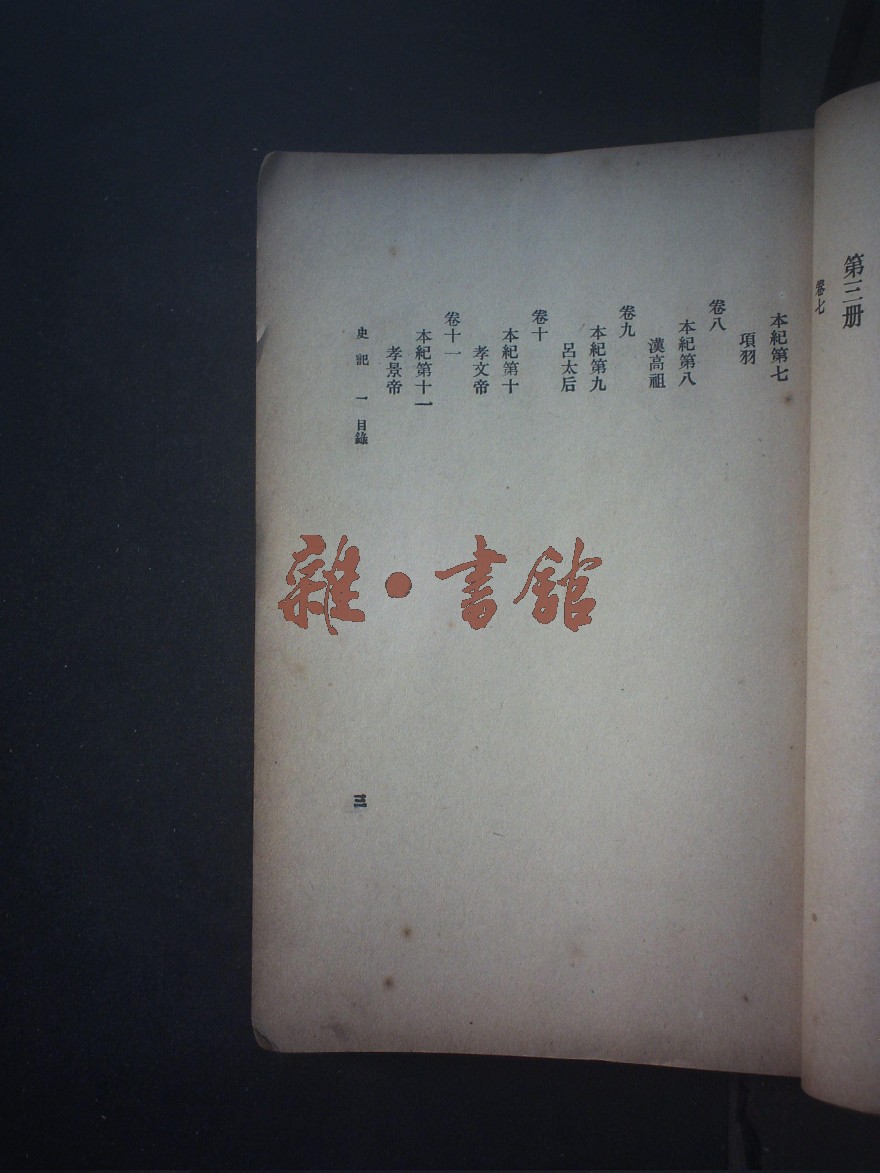 第三册
卷七
本紀第七
項羽
卷八
本紀第八
漢高祖
卷九
本紀第九
呂太后
卷十
本紀第十
孝文帝
卷十一
本紀第十一
孝景帝
史記 一 目錄
三
雜•書館